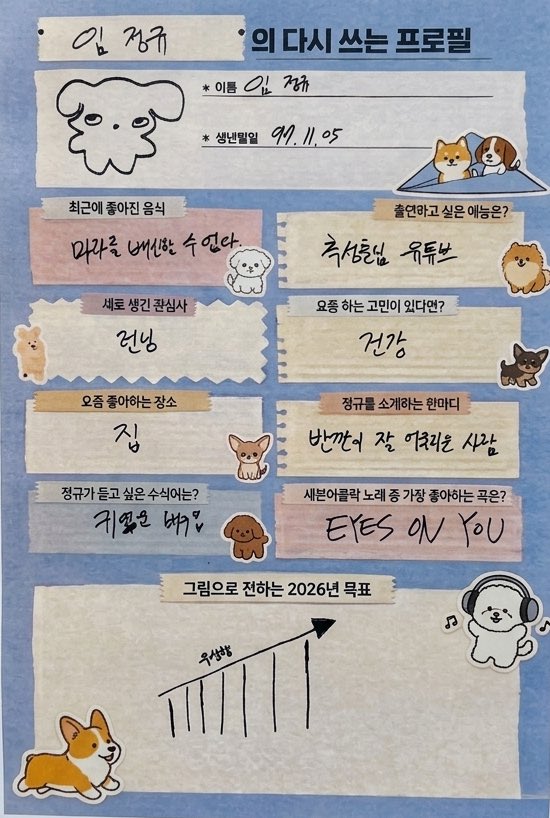 임 정규 의 다시 쓰는 프로필
* 이름 임 정규
* 생년월일 97.11.05
최근에 좋아진 음식
마라를 배신할 수 없다.
출연하고 싶은 예능은?
추성훈님 유튜브
새로 생긴 관심사
런닝
요즘 하는 고민이 있다면?
건강
요즘 좋아하는 장소
집
정규를 소개하는 한마디
반깐이 잘 어울리는 사람
정규가 듣고 싶은 수식어는?
귀여운
세븐어클락 노래 중 가장 좋아하는 곡은?
EYES ON YOU
그림으로 전하는 2026년 목표
우상향